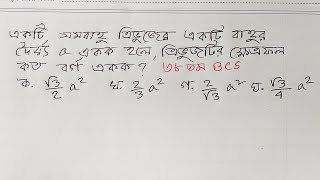 একটি সমবাহু ত্রিভুজের একটি বাহুর
দৈর্ঘ্য a একক হলে, ত্রিভুজটির ক্ষেত্রফল
কত বর্গ একক? ৩৮ তম BCS
ক. √3/2 a² খ. 2/3 a² গ. 2/√3 a² ঘ. √3/4 a²